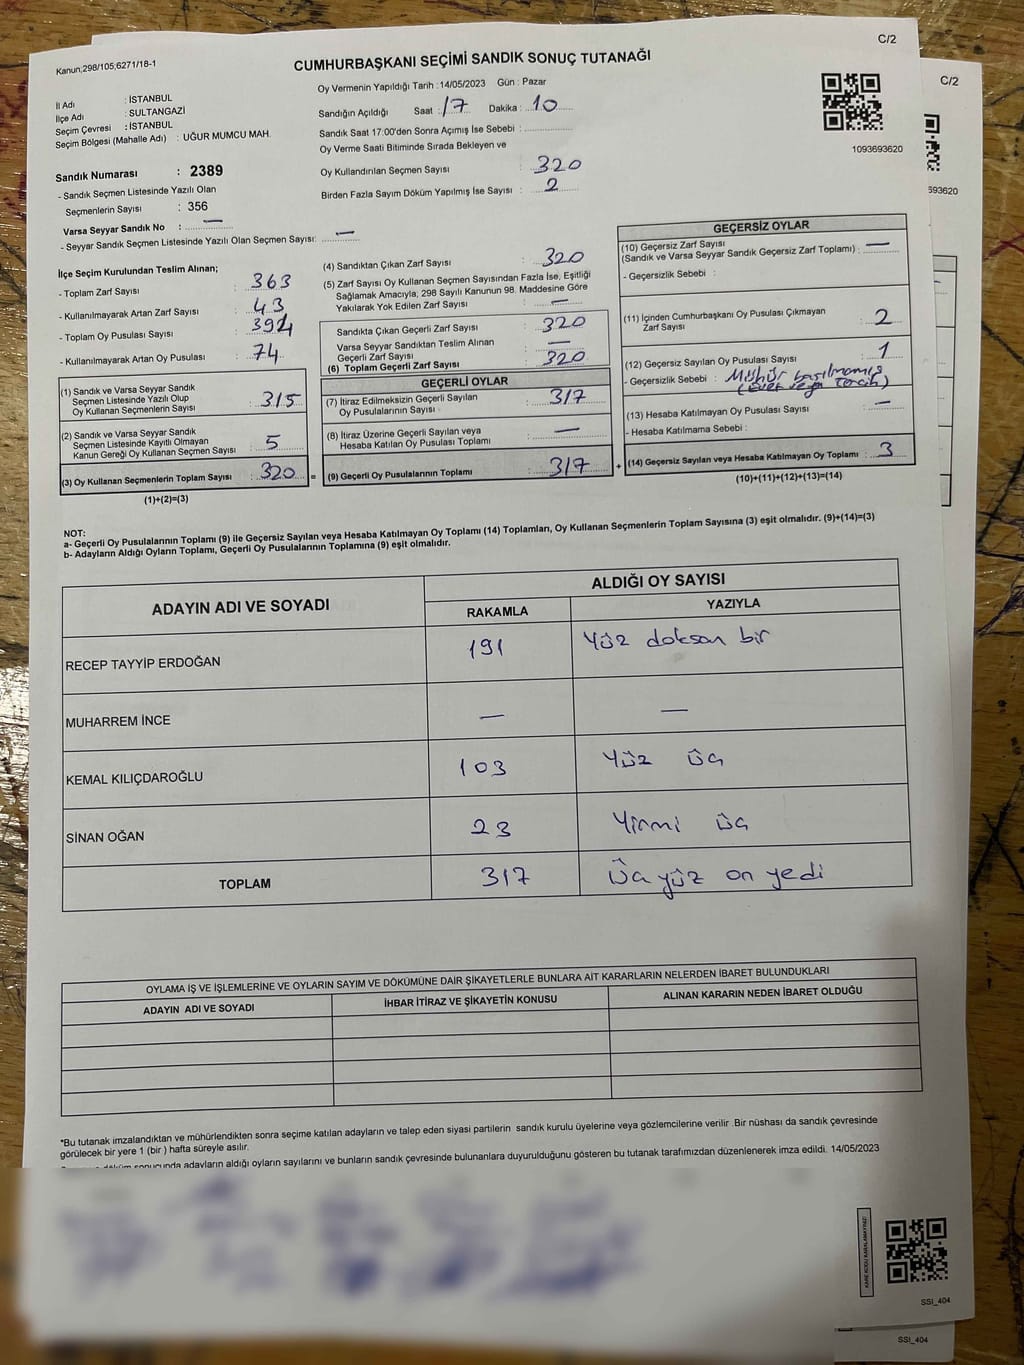 C/2
C/2
Kanun;298/105;6271/18-1
CUMHURBAŞKANI SEÇİMİ SANDIK SONUÇ TUTANAĞI
İl Adı : İSTANBUL
İlçe Adı : SULTANGAZİ
Seçim Çevresi : İSTANBUL
Seçim Bölgesi (Mahalle Adı) : UĞUR MUMCU MAH.
Oy Vermenin Yapıldığı Tarih :14/05/2023 Gün : Pazar
Sandığın Açıldığı Saat : 17 Dakika : 10
Sandık Saat 17:00'den Sonra Açımış İse Sebebi :
Oy Verme Saati Bitiminde Sırada Bekleyen ve
Oy Kullandırılan Seçmen Sayısı : 320
Birden Fazla Sayım Döküm Yapılmış İse Sayısı : 2
1093693620
593620
Sandık Numarası : 2389
- Sandık Seçmen Listesinde Yazılı Olan
Seçmenlerin Sayısı : 356
Varsa Seyyar Sandık No : —
- Seyyar Sandık Seçmen Listesinde Yazılı Olan Seçmen Sayısı: —
İlçe Seçim Kurulundan Teslim Alınan;
- Toplam Zarf Sayısı : 363
- Kullanılmayarak Artan Zarf Sayısı : 43
- Toplam Oy Pusulası Sayısı : 394
- Kullanılmayarak Artan Oy Pusulası : 74
(1) Sandık ve Varsa Seyyar Sandık
Seçmen Listesinde Yazılı Olup
Oy Kullanan Seçmenlerin Sayısı : 315
(2) Sandık ve Varsa Seyyar Sandık
Seçmen Listesinde Kayıtlı Olmayan
Kanun Gereği Oy Kullanan Seçmen Sayısı : 5
(3) Oy Kullanan Seçmenlerin Toplam Sayısı : 320
(1)+(2)=(3)
(4) Sandıktan Çıkan Zarf Sayısı : 320
(5) Zarf Sayısı Oy Kullanan Seçmen Sayısından Fazla İse, Eşitliği
Sağlamak Amacıyla; 298 Sayılı Kanunun 98. Maddesine Göre
Yakılarak Yok Edilen Zarf Sayısı : —
Sandıkta Çıkan Geçerli Zarf Sayısı : 320
Varsa Seyyar Sandıktan Teslim Alınan
Geçerli Zarf Sayısı : —
(6) Toplam Geçerli Zarf Sayısı : 320
GEÇERLİ OYLAR
(7) İtiraz Edilmeksizin Geçerli Sayılan
Oy Pusulalarının Sayısı : 317
(8) İtiraz Üzerine Geçerli Sayılan veya
Hesaba Katılan Oy Pusulası Toplamı : —
= (9) Geçerli Oy Pusulalarının Toplamı : 317 +
GEÇERSİZ OYLAR
(10) Geçersiz Zarf Sayısı
(Sandık ve Varsa Seyyar Sandık Geçersiz Zarf Toplamı) : —
- Geçersizlik Sebebi :
(11) İçinden Cumhurbaşkanı Oy Pusulası Çıkmayan
Zarf Sayısı : 2
(12) Geçersiz Sayılan Oy Pusulası Sayısı : 1
- Geçersizlik Sebebi : Mühür basılmamış
(Evet veya Tercih)
(13) Hesaba Katılmayan Oy Pusulası Sayısı : —
- Hesaba Katılmama Sebebi :
(14) Geçersiz Sayılan veya Hesaba Katılmayan Oy Toplamı : 3
(10)+(11)+(12)+(13)=(14)
NOT:
a- Geçerli Oy Pusulalarının Toplamı (9) ile Geçersiz Sayılan veya Hesaba Katılmayan Oy Toplamı (14) Toplamları, Oy Kullanan Seçmenlerin Toplam Sayısına (3) eşit olmalıdır. (9)+(14)=(3)
b- Adayların Aldığı Oyların Toplamı, Geçerli Oy Pusulalarının Toplamına (9) eşit olmalıdır.
ADAYIN ADI VE SOYADI ALDIĞI OY SAYISI
RAKAMLA YAZIYLA
RECEP TAYYİP ERDOĞAN 191 Yüz doksan bir
MUHARREM İNCE — —
KEMAL KILIÇDAROĞLU 103 Yüz üç
SİNAN OĞAN 23 Yirmi üç
TOPLAM 317 Üç yüz on yedi
OYLAMA İŞ VE İŞLEMLERİNE VE OYLARIN SAYIM VE DÖKÜMÜNE DAİR ŞİKAYETLERLE BUNLARA AİT KARARLARIN NELERDEN İBARET BULUNDUKLARI
ADAYIN ADI VE SOYADI İHBAR İTİRAZ VE ŞİKAYETİN KONUSU ALINAN KARARIN NEDEN İBARET OLDUĞU
*Bu tutanak imzalandıktan ve mühürlendikten sonra seçime katılan adayların ve talep eden siyasi partilerin sandık kurulu üyelerine veya gözlemcilerine verilir .Bir nüshası da sandık çevresinde
görülecek bir yere 1 (bir ) hafta süreyle asılır.
sonucunda adayların aldığı oyların sayılarını ve bunların sandık çevresinde bulunanlara duyurulduğunu gösteren bu tutanak tarafımızdan düzenlenerek imza edildi. 14/05/2023
KAREKODU KARALAMAYINIZ!
SSI_404
SSI_404